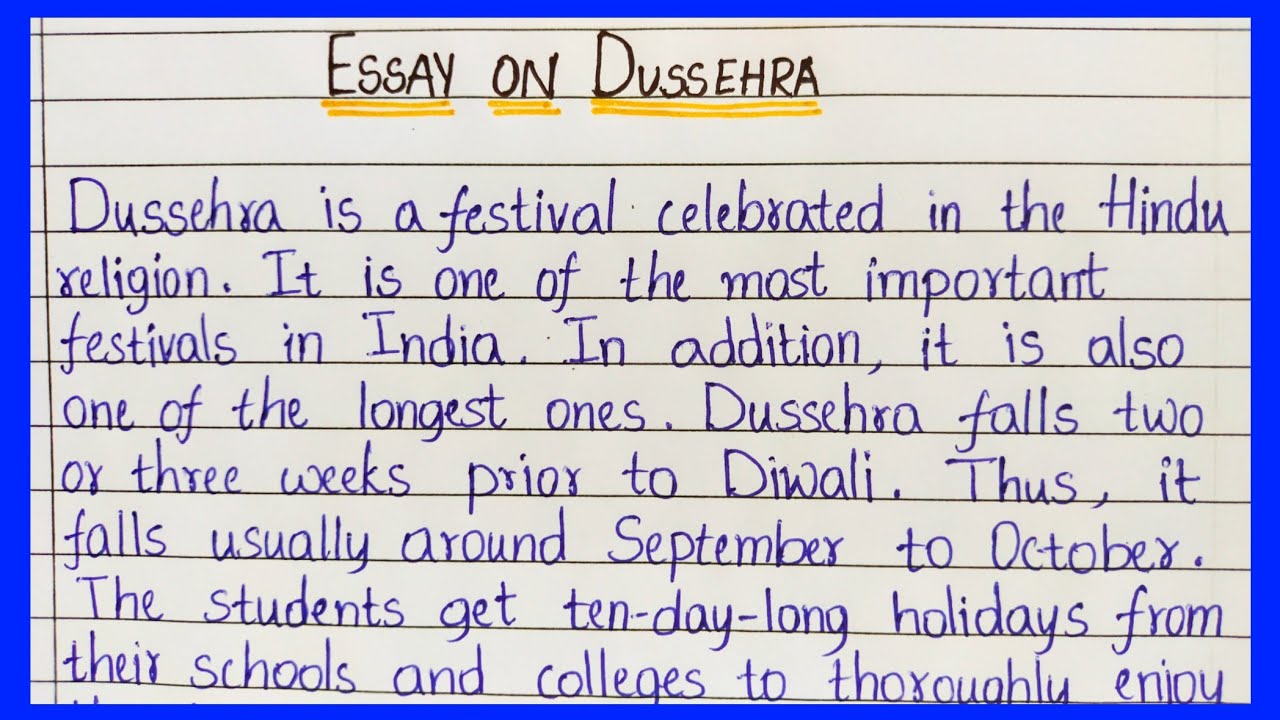 ESSAY ON DUSSEHRA
Dussehra is a festival celebrated in the Hindu
religion. It is one of the most important
festivals in India. In addition, it is also
one of the longest ones. Dussehra falls two
or three weeks prior to Diwali. Thus, it
falls usually around September to October.
The students get ten-day-long holidays from
their schools and colleges to thoroughly enjoy